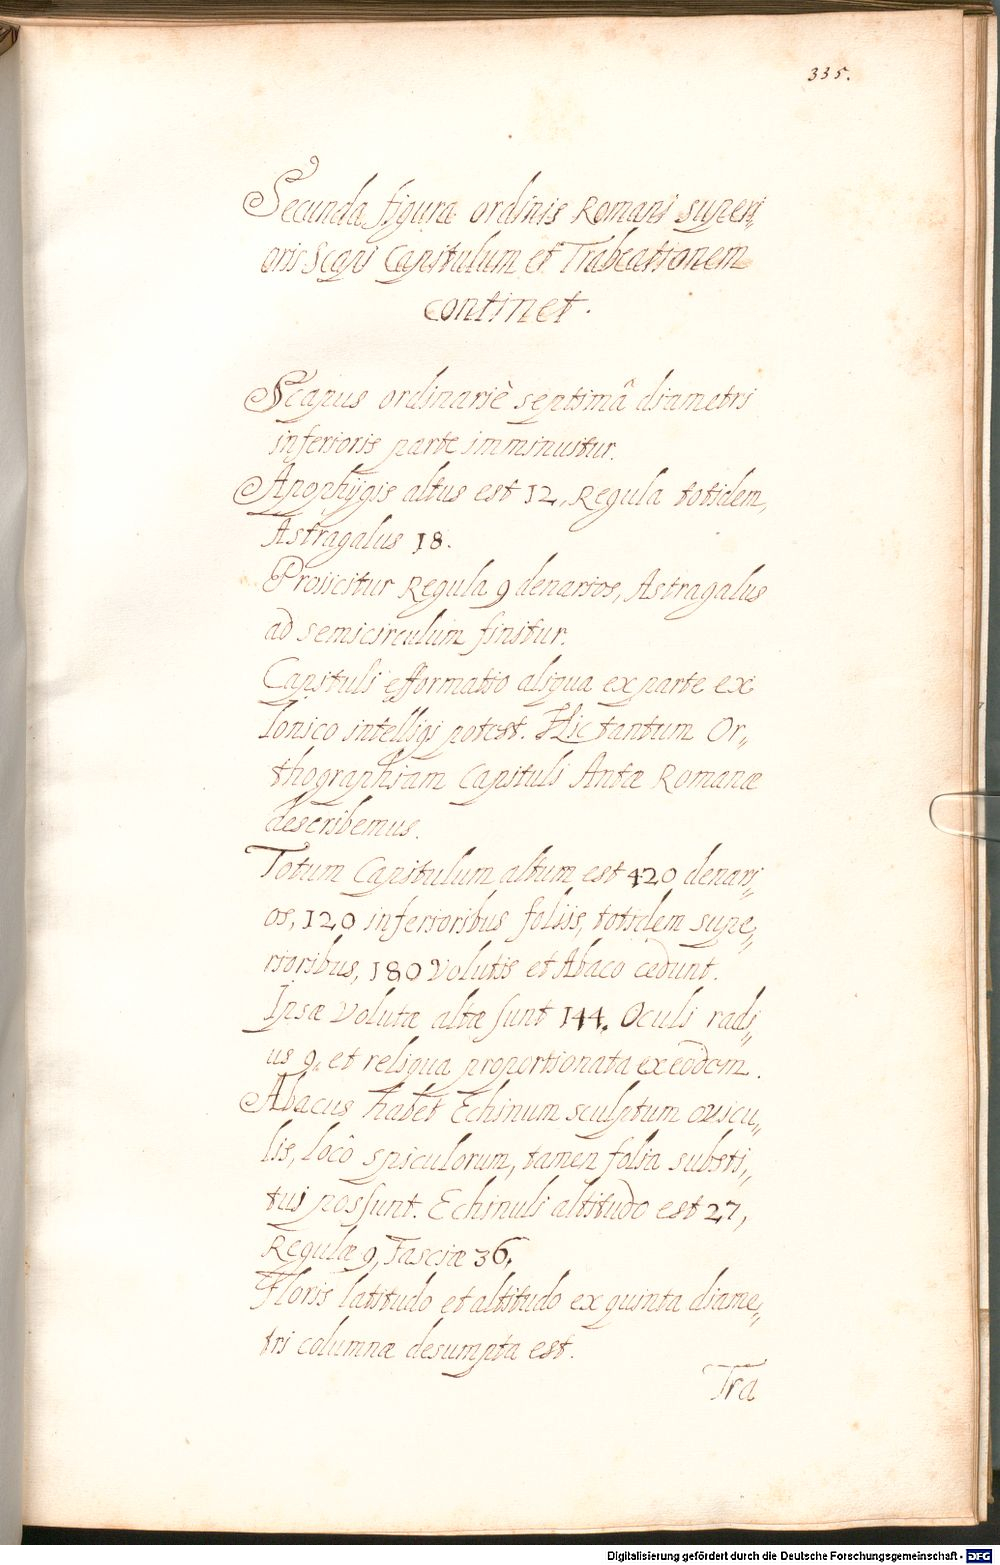 335.
Secunda figura ordinis Romani superi„
oris Scapi Capitulum et Trabeationem
continet.
Scapus ordinariè septimâ diametri
inferioris parte imminuitur.
Apophÿgis altus est 12, Regula totidem,
Astragalus 18.
Proiicitur Regula 9 denarios, Astragalus
ad semicirculum finitur.
Capituli efformatio aliqua ex parte ex
Ionico intelligi potest. Hic tantum Or„
thographiam Capituli Antæ Romanæ
describemus.
Totum Capitulum altum est 420 denari„
os, 120 inferioribus foliis, totidem supe„
rioribus, 180 Volutis et Abaco cedunt.
Ipsæ Volutæ altæ sunt 144. Oculi radi„
us 9. et reliqua proportionata ex eodem.
Abacus habet Echinum sculptum ovicu„
lis, locô spiculorum, tamen folia substi„
tui possunt. Echinuli altitudo est 27,
Regulæ 9, Fasciæ 36.
Floris latitudo et altitudo ex quinta diame„
tri columnæ desumpta est.
Tra
Digitalisierung gefördert durch die Deutsche Forschungsgemeinschaft - DFG